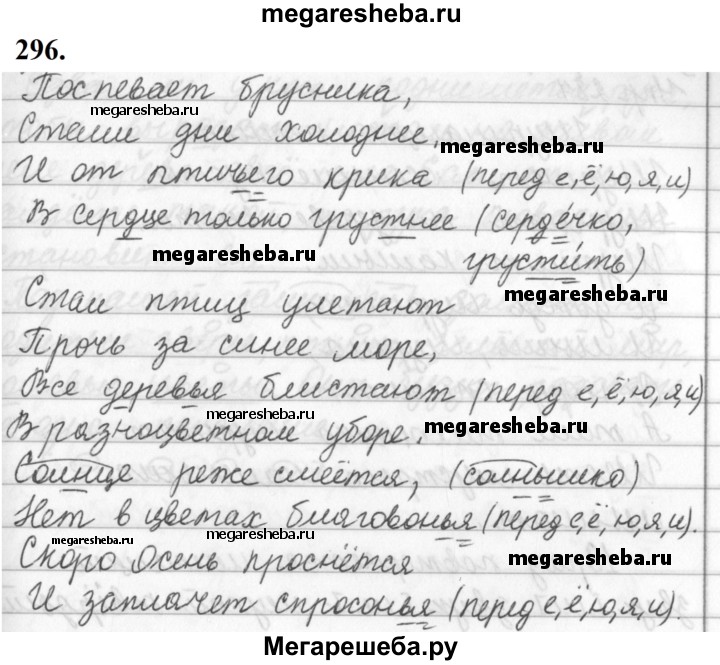 megaresheba.ru
296.
Поспевает брусника,
megaresheba.ru
Стали дни холоднее,
megaresheba.ru
И от птичьего крика (перед е, ё, ю, я, и)
В сердце только грустнее (сердечко,
megaresheba.ru
грустить)
Стаи птиц улетают
megaresheba.ru
Прочь за синее море,
Все деревья блистают (перед е, ё, ю, я, и)
megaresheba.ru
В разноцветном уборе.
megaresheba.ru
Солнце реже смеётся, (солнышко)
Нет в цветах благовонья (перед е, ё, ю, я, и).
megaresheba.ru
Скоро Осень проснётся
megaresheba.ru
И заплачет спросонья (перед е, ё, ю, я, и).
Мегарешеба.ру